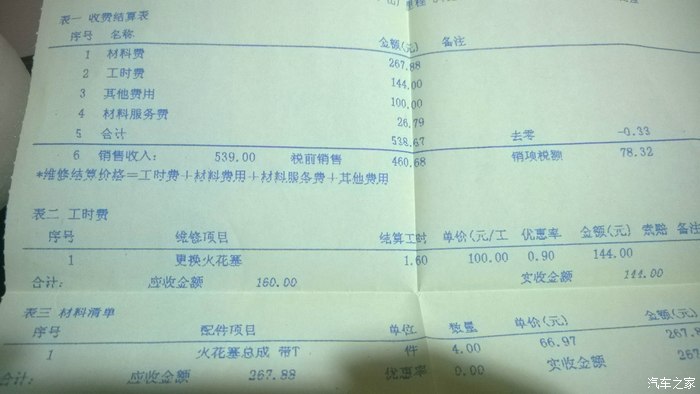 表一 收费结算表
序号 名称 金额(元) 备注
1 材料费 267.88
2 工时费 144.00
3 其他费用 100.00
4 材料服务费 26.79
5 合计 538.67 去零 -0.33
6 销售收入: 539.00 税前销售 460.68 销项税额 78.32
*维修结算价格=工时费+材料费用+材料服务费+其他费用
表二 工时费
序号 维修项目 结算工时 单价(元/工 优惠率 金额(元) 索赔 备注
1 更换火花塞 1.60 100.00 0.90 144.00
合计: 应收金额 160.00 实收金额 144.00
表三 材料清单
序号 配件项目 单位 数量 单价(元) 金额(元)
1 火花塞总成 带T 件 4.00 66.97 267.8
合计: 应收金额 267.88 优惠率 0.00 实收金额 267.
汽车之家